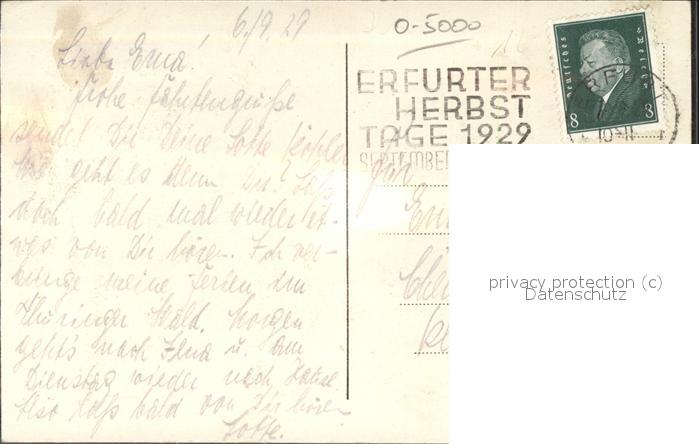 6/9. 29
0-5000
Liebe Erna!
Frohe Fahrtengrüße
sendet Dir Deine Lotte
Wie geht es denn Dir? Laß
doch bald mal wieder et-
was von Dir hören. Ich ver-
bringe meine Ferien im
Thüringer Wald. Morgen
geht's nach Jena u. am
Dienstag wieder nach Hause
Also laß bald von Dir hören
Lotte.
ERFURTER
HERBST
TAGE 1929
SEPTEMBER
Deutsches Reich
8 8
privacy protection (c)
Datenschutz